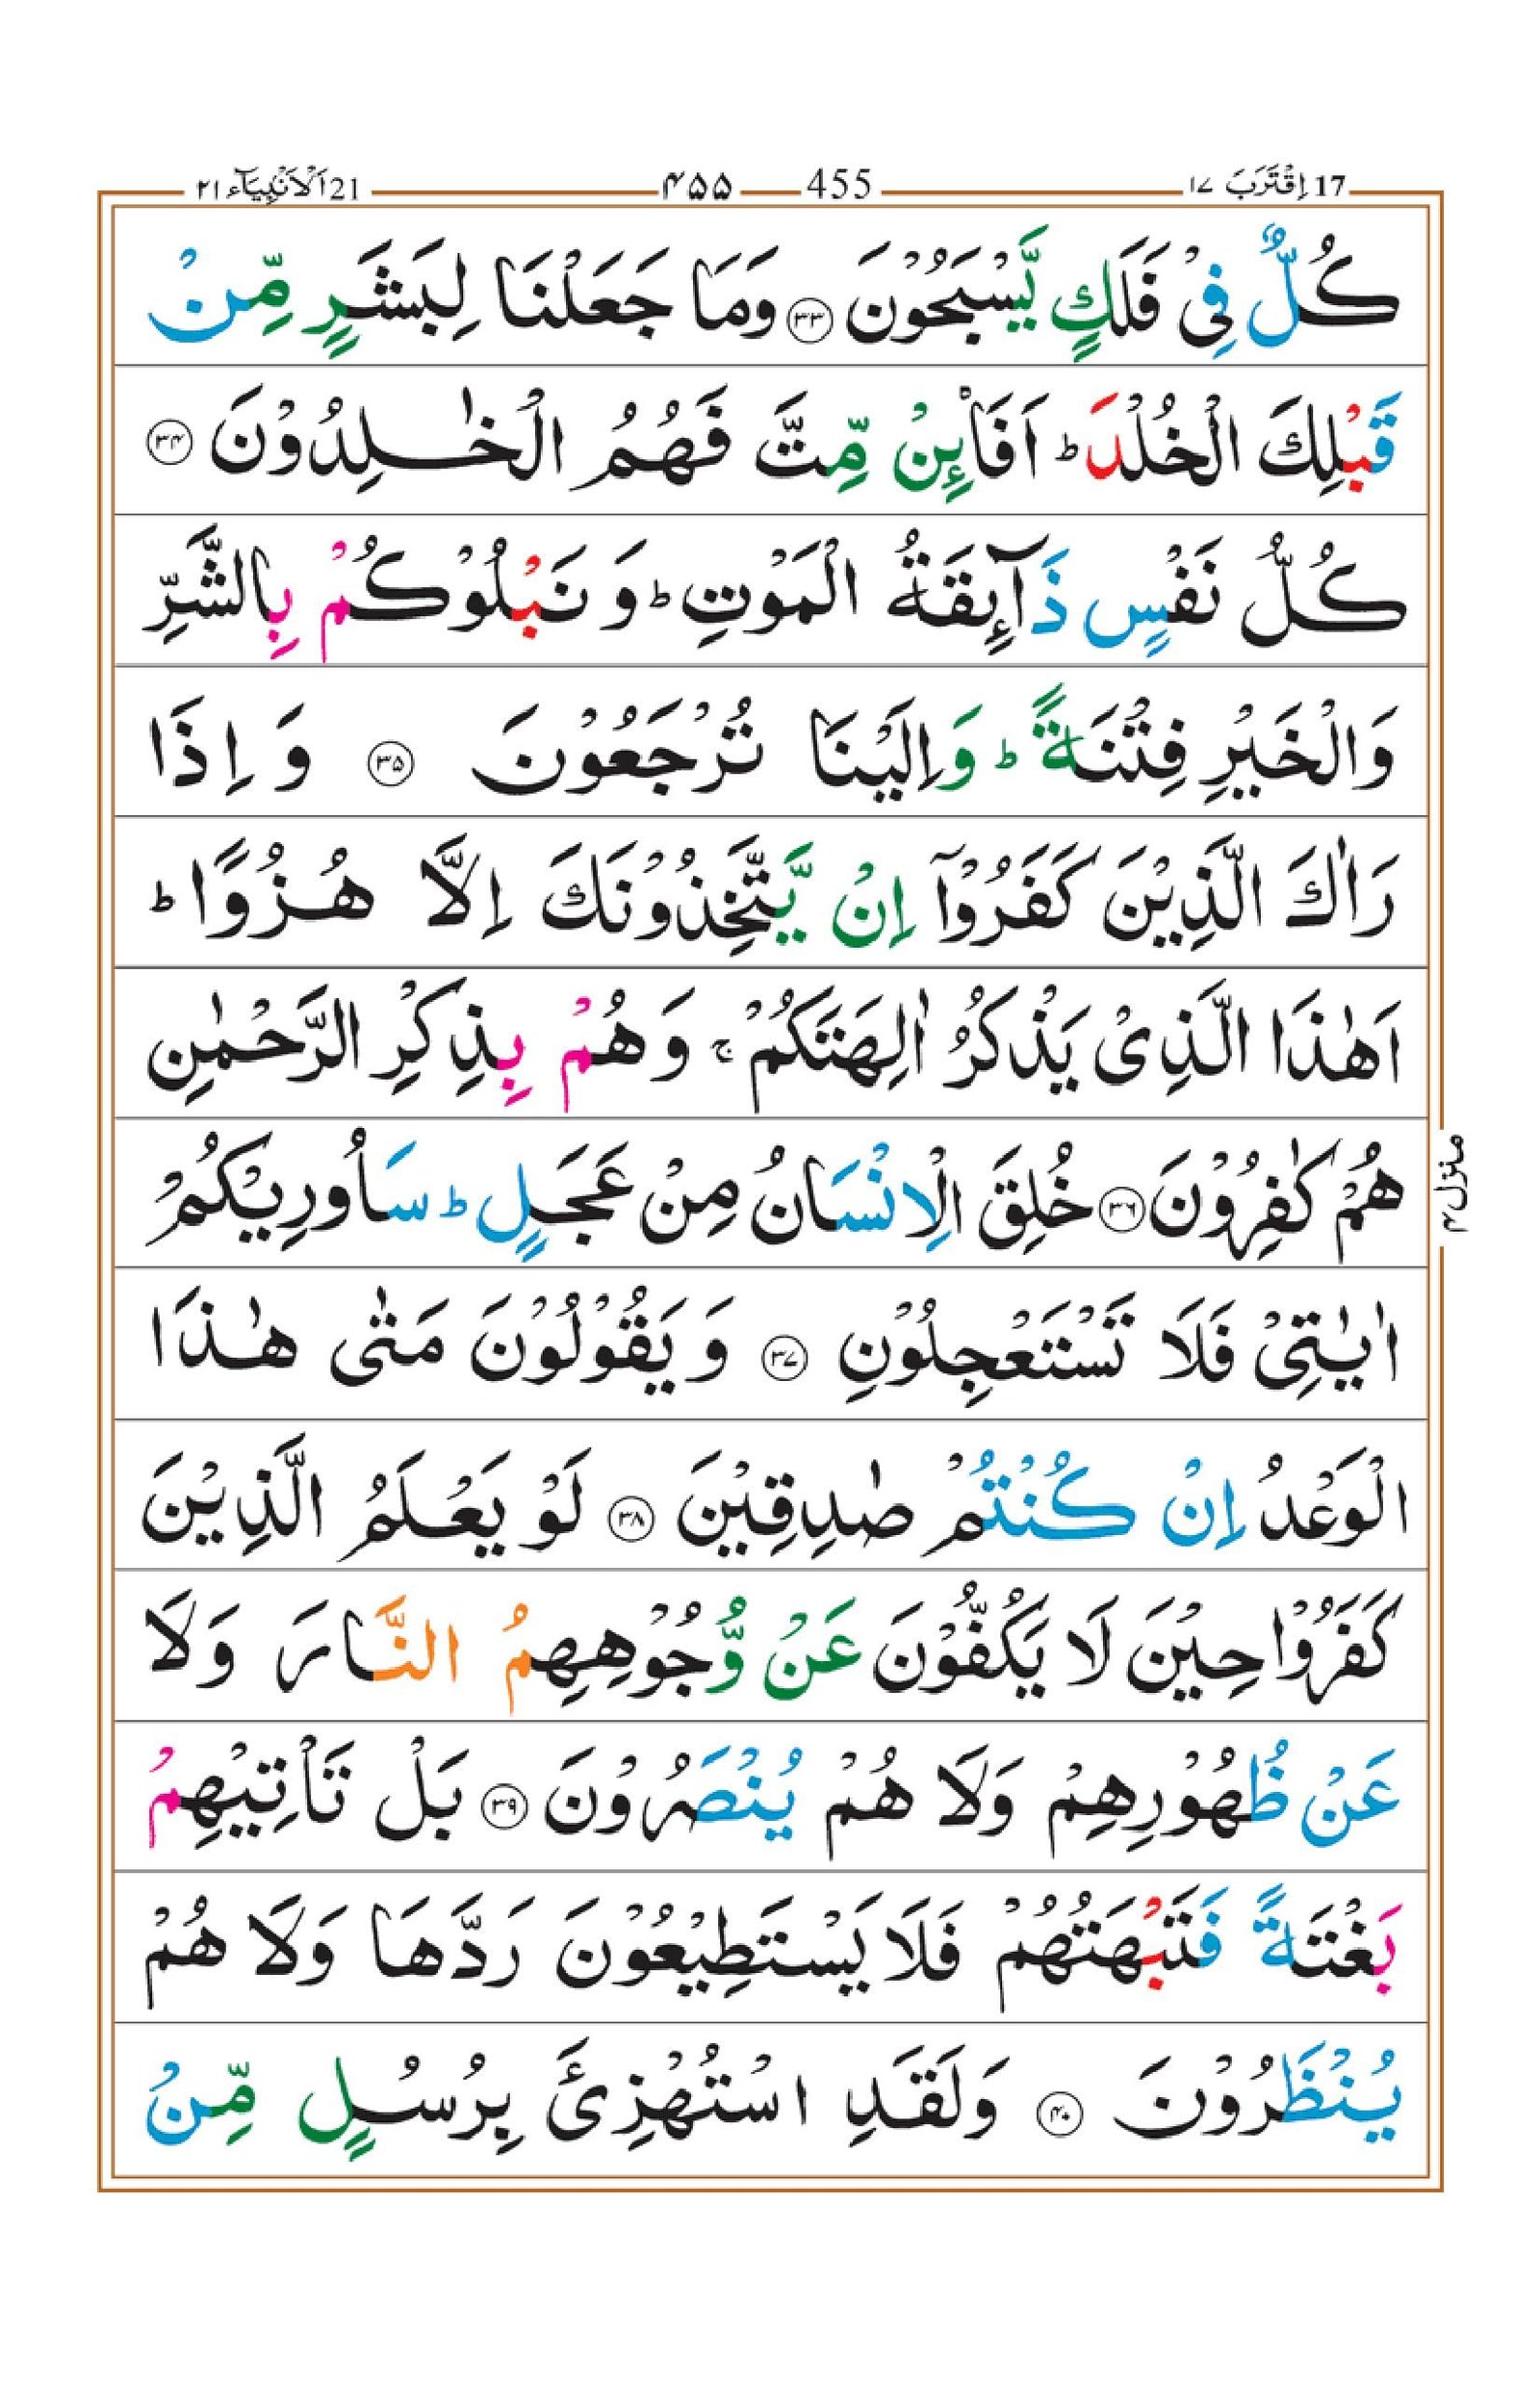 17 اِقْتَرَبَ ١٧ 455 ۴۵۵ 21 اَلْاَنْۢبِيَآء ٢١
كُلٌّ فِیْ فَلَكٍ یَّسْبَحُوْنَ ۝۳۳ وَمَا جَعَلْنَا لِبَشَرٍ مِّنْ
قَبْلِكَ الْخُلْدَ ؕ اَفَا۠ئِنْ مِّتَّ فَهُمُ الْخٰلِدُوْنَ ۝۳۴
كُلُّ نَفْسٍ ذَآىِٕقَةُ الْمَوْتِ ؕ وَ نَبْلُوْكُمْ بِالشَّرِّ
وَالْخَیْرِ فِتْنَةً ؕ وَاِلَیْنَا تُرْجَعُوْنَ ۝۳۵ وَ اِذَا
رَاٰكَ الَّذِیْنَ كَفَرُوْۤا اِنْ یَّتَّخِذُوْنَكَ اِلَّا هُزُوًا ؕ
اَهٰذَا الَّذِیْ یَذْكُرُ اٰلِهَتَكُمْ ۚ وَهُمْ بِذِكْرِ الرَّحْمٰنِ
هُمْ كٰفِرُوْنَ ۝۳۶ خُلِقَ الْاِنْسَانُ مِنْ عَجَلٍ ؕ سَاُورِیْكُمْ
اٰیٰتِیْ فَلَا تَسْتَعْجِلُوْنِ ۝۳۷ وَ یَقُوْلُوْنَ مَتٰی هٰذَا
الْوَعْدُ اِنْ كُنْتُمْ صٰدِقِیْنَ ۝۳۸ لَوْ یَعْلَمُ الَّذِیْنَ
كَفَرُوْا حِیْنَ لَا یَكُفُّوْنَ عَنْ وُّجُوْهِهِمُ النَّارَ وَلَا
عَنْ ظُهُوْرِهِمْ وَلَا هُمْ یُنْصَرُوْنَ ۝۳۹ بَلْ تَاْتِیْهِمْ
بَغْتَةً فَتَبْهَتُهُمْ فَلَا یَسْتَطِیْعُوْنَ رَدَّهَا وَلَا هُمْ
یُنْظَرُوْنَ ۝۴۰ وَلَقَدِ اسْتُهْزِئَ بِرُسُلٍ مِّنْ
منزل۴